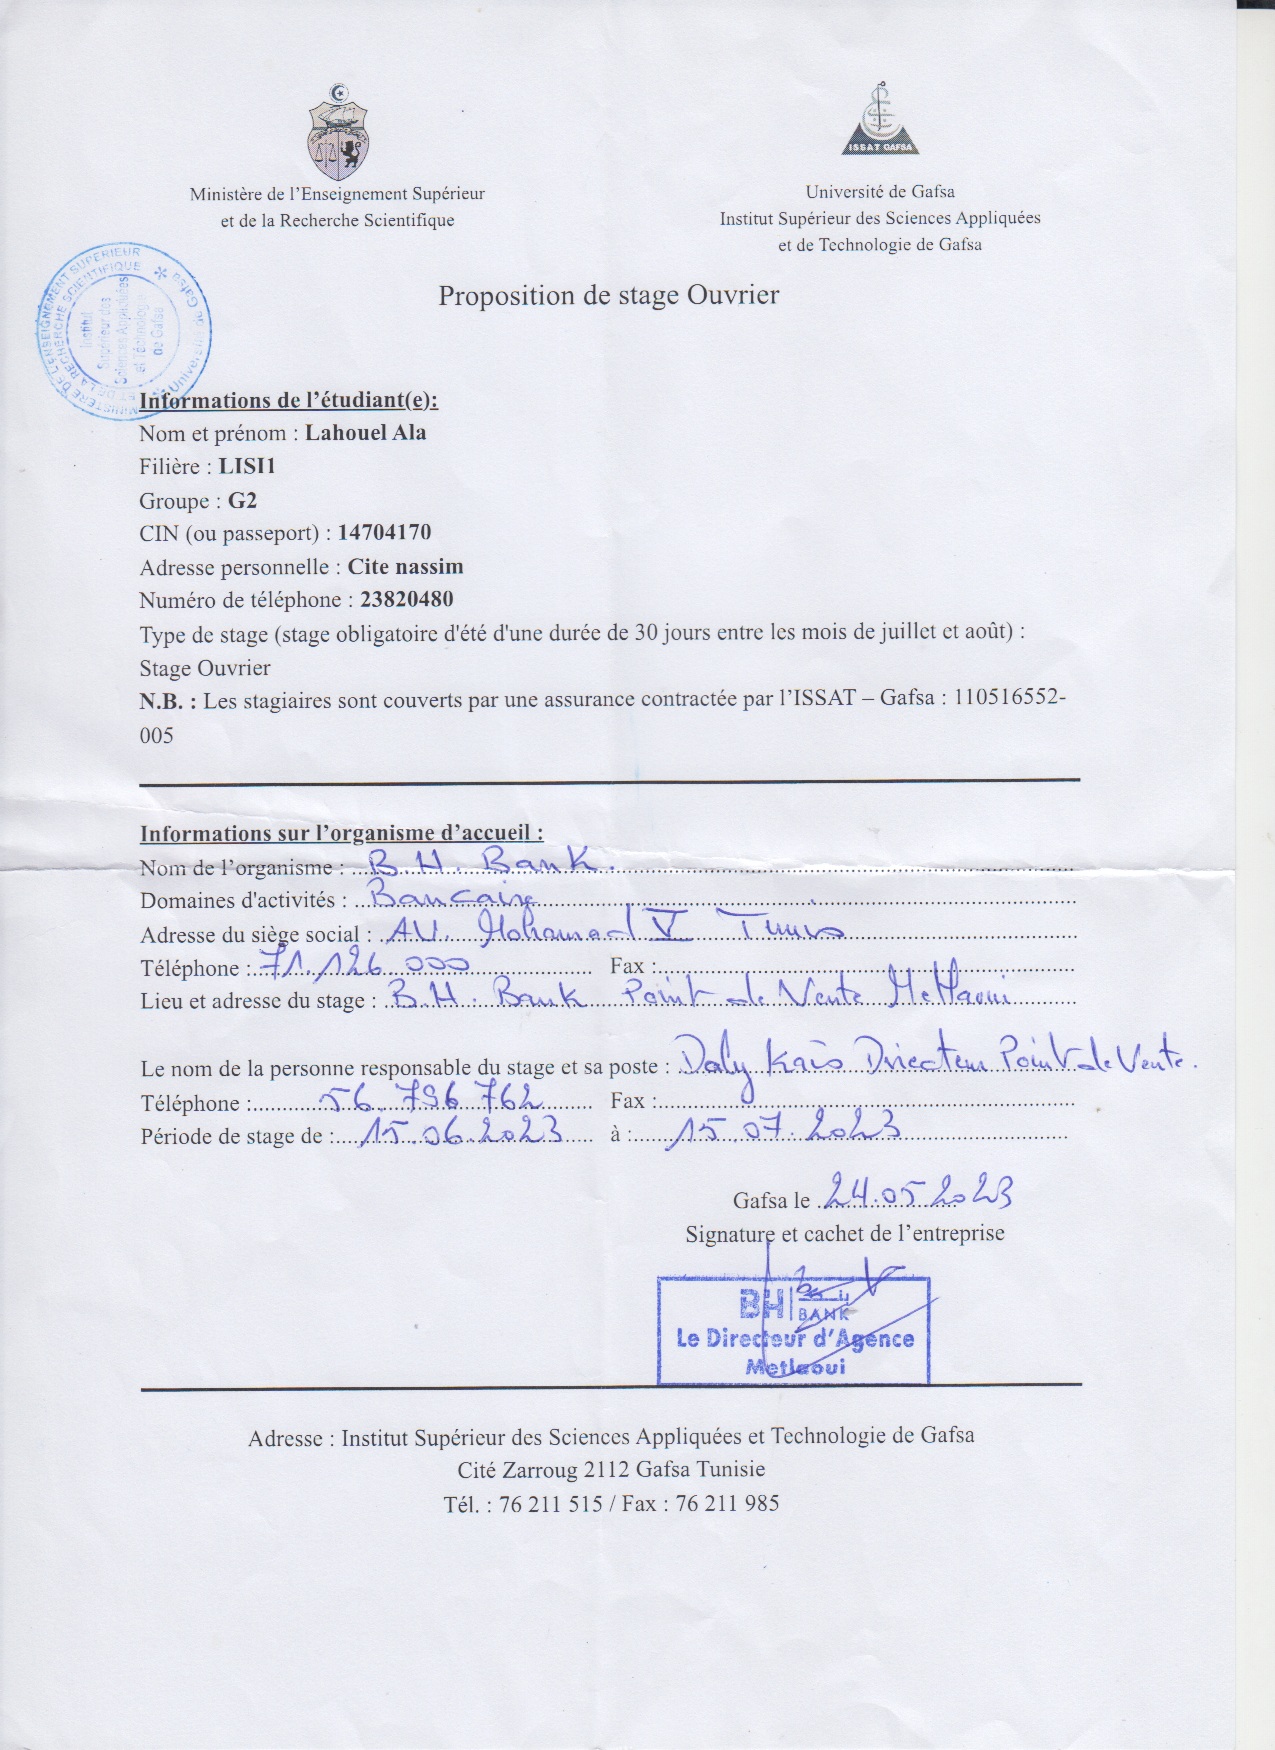 ISSAT GAFSA
Ministère de l'Enseignement Supérieur
et de la Recherche Scientifique
Université de Gafsa
Institut Supérieur des Sciences Appliquées
et de Technologie de Gafsa
MINISTERE DE L'ENSEIGNEMENT SUPERIEUR
ET DE LA RECHERCHE SCIENTIFIQUE
Institut
Supérieur des
Sciences Appliquées
et Technologie
de Gafsa
Proposition de stage Ouvrier
Informations de l'étudiant(e):
Nom et prénom : Lahouel Ala
Filière : LISI1
Groupe : G2
CIN (ou passeport) : 14704170
Adresse personnelle : Cite nassim
Numéro de téléphone : 23820480
Type de stage (stage obligatoire d'été d'une durée de 30 jours entre les mois de juillet et août) :
Stage Ouvrier
N.B. : Les stagiaires sont couverts par une assurance contractée par l'ISSAT – Gafsa : 110516552-
005
Informations sur l'organisme d'accueil :
Nom de l'organisme : B.H. Bank.
Domaines d'activités : Bancaire
Adresse du siège social : AV. Mohamed V Tunis
Téléphone : 71.126 000 Fax :
Lieu et adresse du stage : B.H. Bank Point de Vente Metlaoui
Le nom de la personne responsable du stage et sa poste : Daly Kais Directeur Point de Vente.
Téléphone : 56.796 762 Fax :
Période de stage de : 15.06.2023 à : 15.07.2023
Gafsa le 24.05.2023
Signature et cachet de l'entreprise
BH بنك
BANK
Le Directeur d'Agence
Metlaoui
Adresse : Institut Supérieur des Sciences Appliquées et Technologie de Gafsa
Cité Zarroug 2112 Gafsa Tunisie
Tél. : 76 211 515 / Fax : 76 211 985